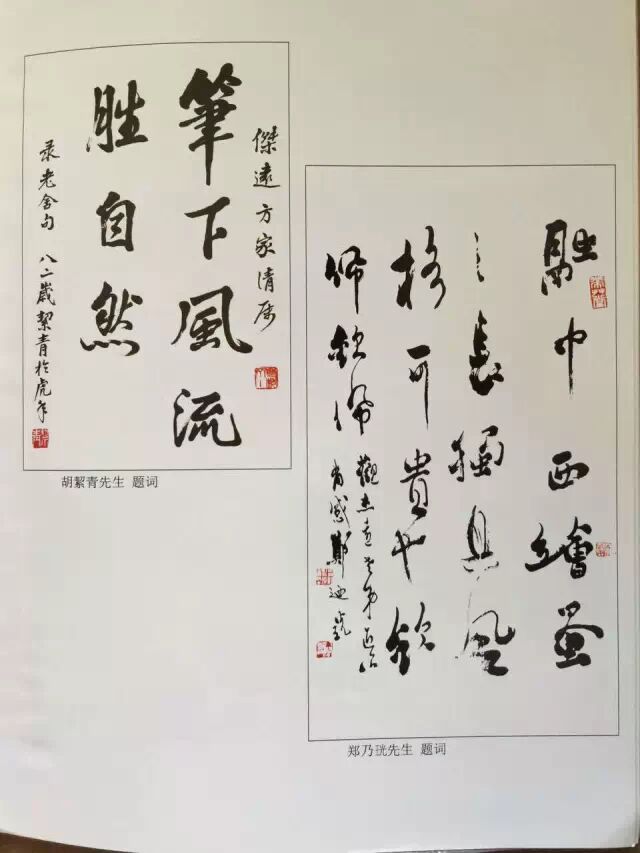 傑遠方家清属
筆下風流
胜自然
录老舍句 八二歲絜青於虎年
胡絜青先生 题词
融中西繪畫
之長獨具風
格可貴也欽
佩欽佩
觀杰遠老弟近作
有感鄭迺珖
郑乃珖先生 题词